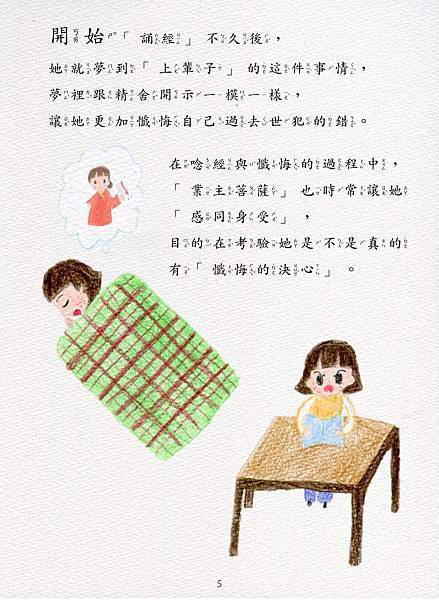 開始「誦經」不久後，
她就夢到「上輩子」的這件事情，
夢裡跟精舍開示一模一樣，
讓她更加懺悔自己過去世犯的錯。
在唸經與懺悔的過程中，
「業主菩薩」也時常讓她
「感同身受」，
目的在考驗她是不是真的
有「懺悔的決心」。
5